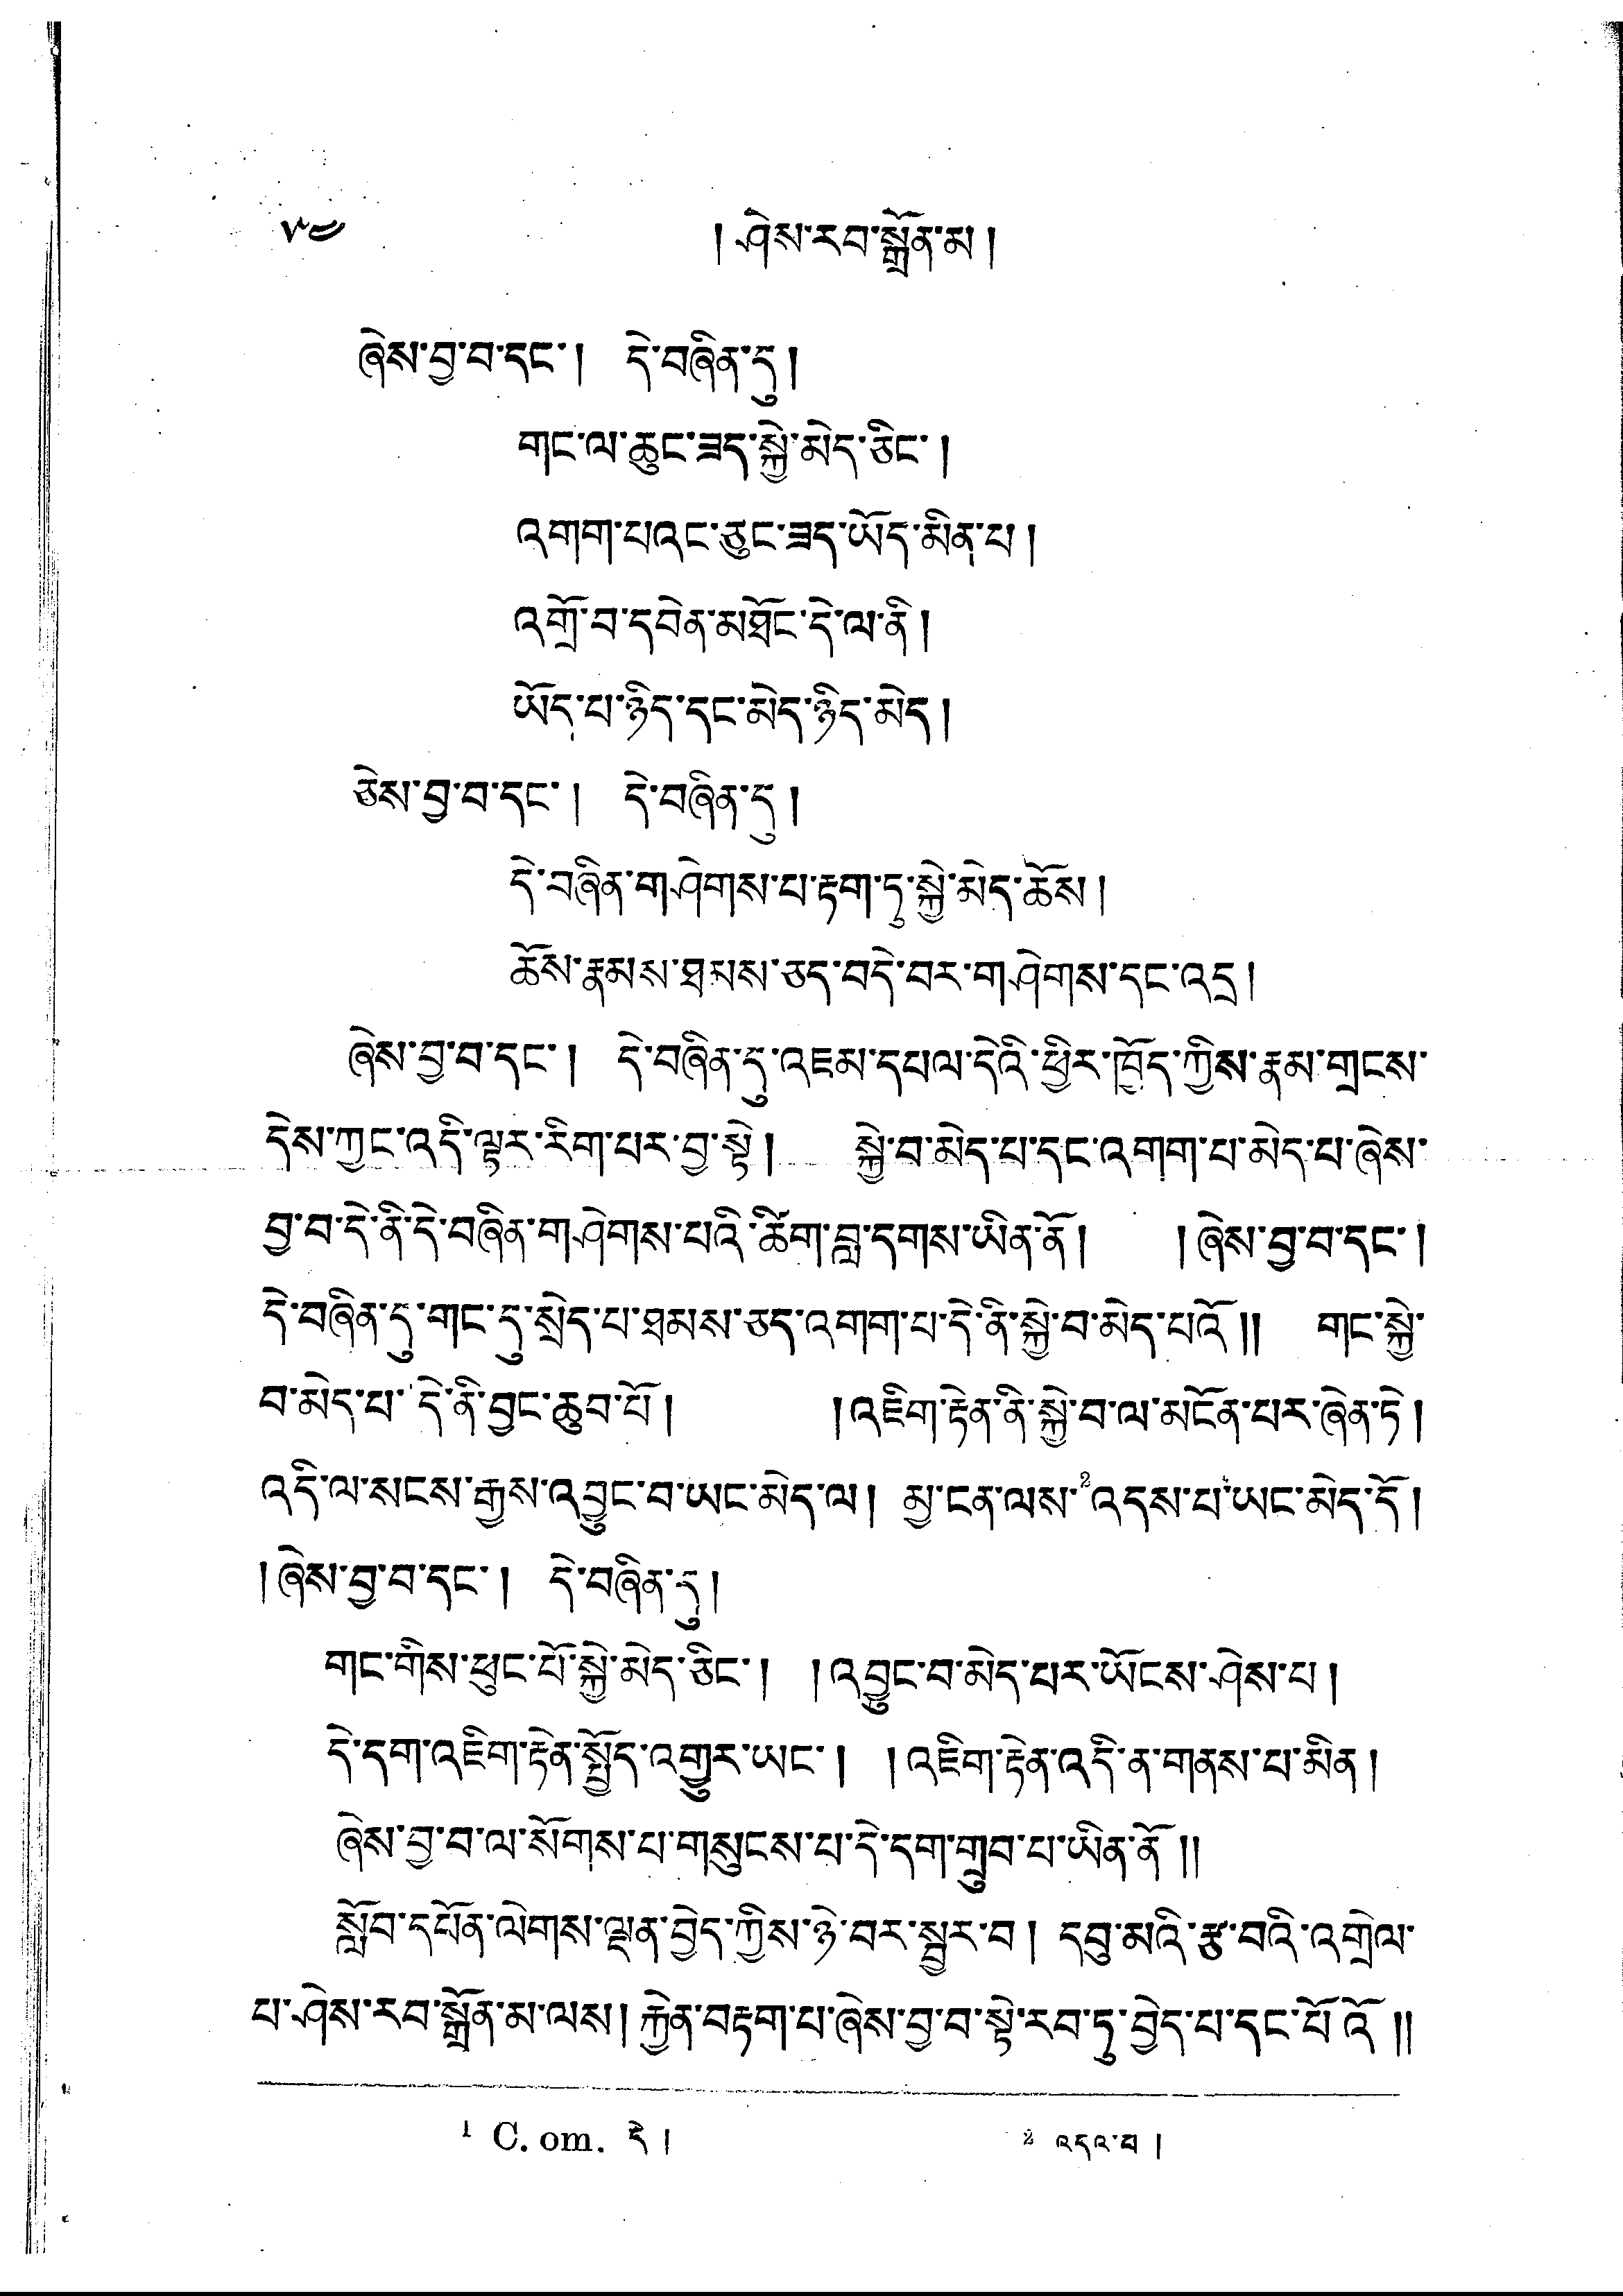 ༧༠ །ཤེས་རབ་སྒྲོན་མ།
ཞེས་བྱ་བ་དང་། དེ་བཞིན་དུ།
གང་ལ་ཆུང་ཟད་སྐྱེ་མེད་ཅིང་།
འགག་པའང་ཅུང་ཟད་ཡོད་མིན་པ།
འགྲོ་བ་དབེན་མཐོང་དེ་ལ་ནི།
ཡོད་པ་ཉིད་དང་མེད་ཉིད་མེད།
ཅེས་བྱ་བ་དང་། དེ་བཞིན་དུ།
དེ་བཞིན་གཤེགས་པ་རྟག་ཏུ་སྐྱེ་མེད་ཆོས།
ཆོས་རྣམས་ཐམས་ཅད་བདེ་བར་གཤེགས་དང་འདྲ།
ཞེས་བྱ་བ་དང་། དེ་བཞིན་དུ་འཇམ་དཔལ་དེའི་ཕྱིར་ཁྱོད་ཀྱིས་རྣམ་གྲངས་
དེས་ཀྱང་འདི་ལྟར་རིག་པར་བྱ་སྟེ། སྐྱེ་བ་མེད་པ་དང་འགག་པ་མེད་པ་ཞེས་
བྱ་བ་དེ་ནི་དེ་བཞིན་གཤེགས་པའི་ཚིག་བླ་དགས་ཡིན་ནོ། །ཞེས་བྱ་བ་དང་།
དེ་བཞིན་དུ་གང་དུ་སྲེད་པ་ཐམས་ཅད་འགག་པ་དེ་ནི་སྐྱེ་བ་མེད་པའོ།། གང་སྐྱེ་
བ་མེད་པ་ དེ་ནི་བྱང་ཆུབ་པོ། །འཇིག་རྟེན་ནི་སྐྱེ་བ་ལ་མངོན་པར་ཞེན་ཏེ།
འདི་ལ་སངས་རྒྱས་འབྱུང་བ་ཡང་མེད་ལ། མྱ་ངན་ལས་²འདས་པ་ཡང་མེད་དོ།
།ཞེས་བྱ་བ་དང་། དེ་བཞིན་དུ།
གང་གིས་ཕུང་པོ་སྐྱེ་མེད་ཅིང་། །འབྱུང་བ་མེད་པར་ཡོངས་ཤེས་པ།
དེ་དག་འཇིག་རྟེན་སྤྱོད་འགྱུར་ཡང་། །འཇིག་རྟེན་འདི་ན་གནས་པ་མིན།
ཞེས་བྱ་བ་ལ་སོགས་པ་གསུངས་པ་དེ་དག་གྲུབ་པ་ཡིན་ནོ།།
སློབ་དཔོན་ལེགས་ལྡན་བྱེད་ཀྱིས་ཉེ་བར་སྦྱར་བ། དབུ་མའི་རྩ་བའི་འགྲེལ་
པ་ཤེས་རབ་སྒྲོན་མ་ལས། རྐྱེན་བརྟག་པ་ཞེས་བྱ་བ་སྟེ་རབ་ཏུ་བྱེད་པ་དང་པོ་འོ།།
¹ C. om. དེ། ² འདའ་བ།